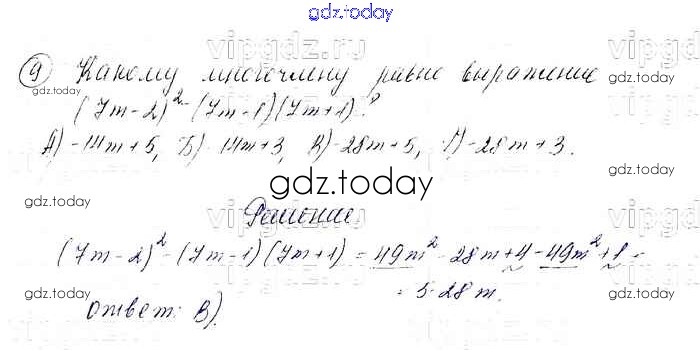 gdz.today
vipgdz.ru
9) Какому многочлену равно выражение
gdz.today
(7m-2)² - (7m-1)(7m+1)?
А) -14m+5, Б) -14m+3, В) -28m+5, Г) -28m+3.
gdz.today
Решение.
(7m-2)² - (7m-1)(7m+1) = 49m² - 28m + 4 - 49m² + 1 =
= 5 - 28m.
gdz.today
Ответ: В).